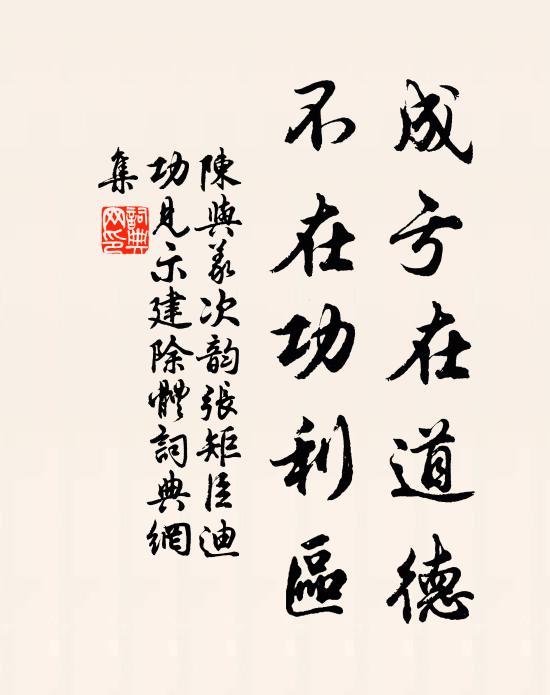 成亏在道德
不在功利區
陳與義次韵張矩臣迪
功見示建除體詞典網
集
詞典
网印